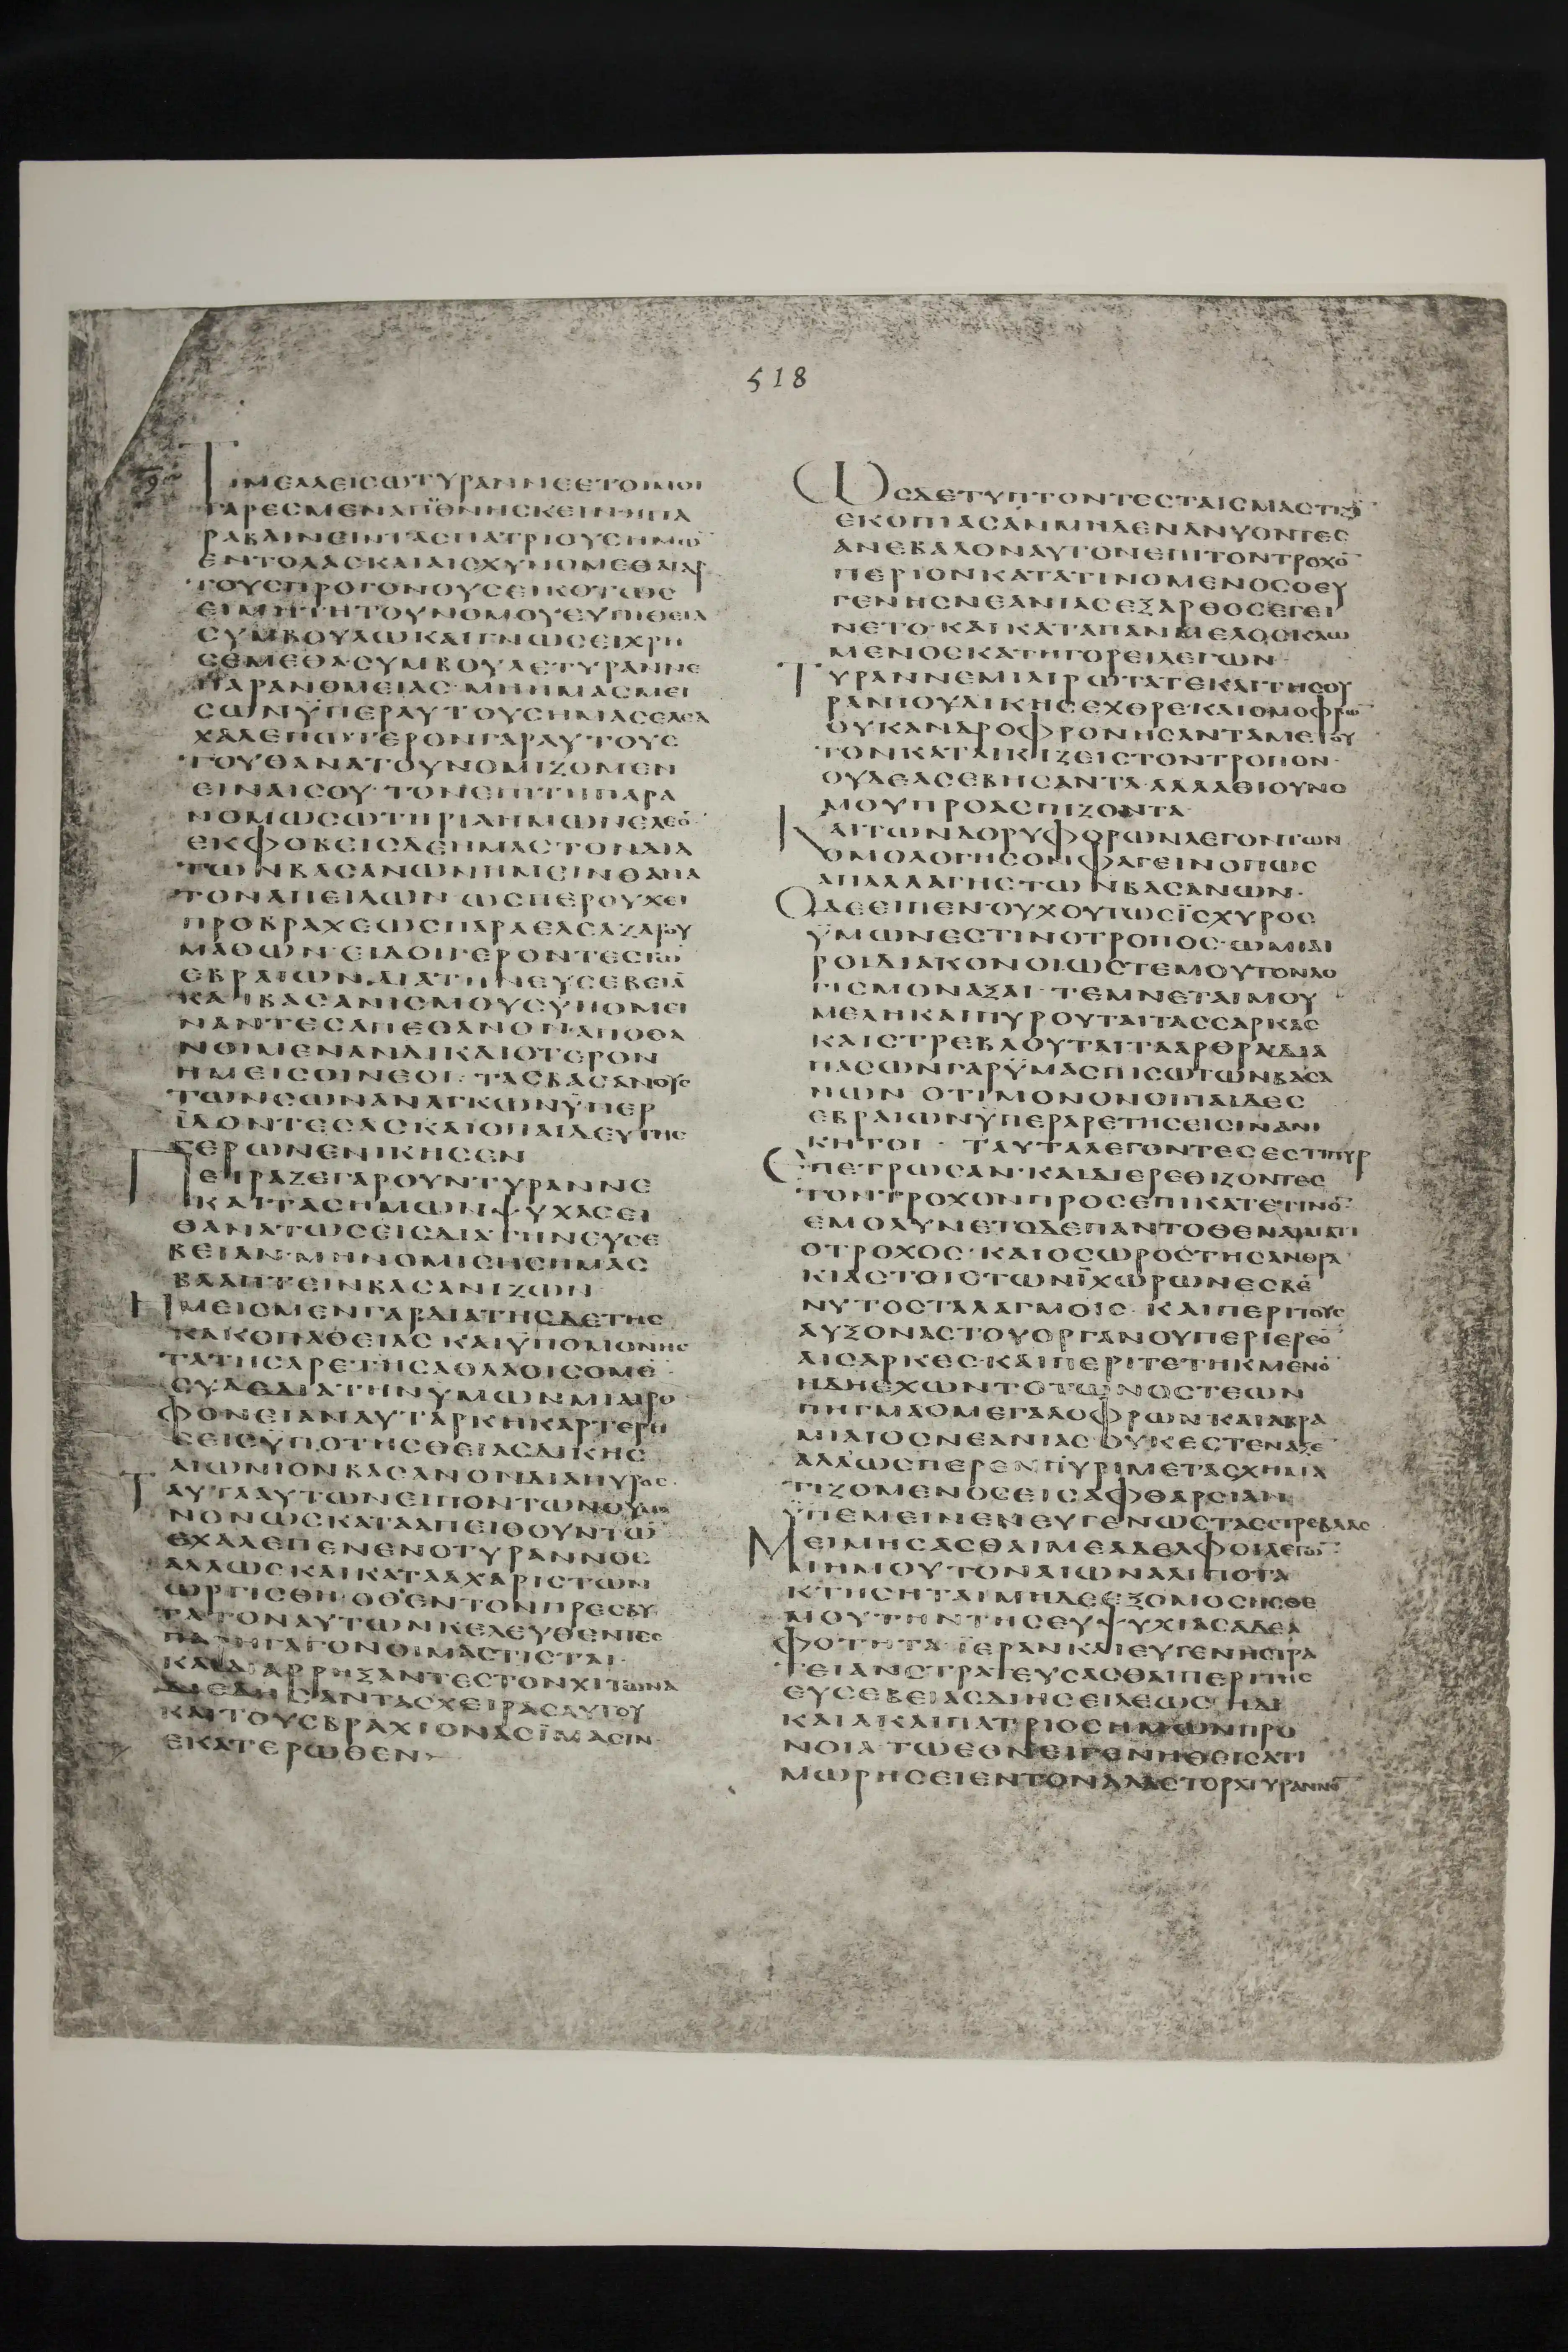 518
ΤΙΜΕΛΛΕΙϹΩΤΥΡΑΝΝΕΕΤΟΙΜΟΙ
ΓΑΡΕϹΜΕΝΑΠΟΘΝΗϹΚΕΙΝΗΠΑ
ΡΑΒΑΙΝΕΙΝΤΑϹΠΑΤΡΙΟΥϹΗΜΩ̅
ΕΝΤΟΛΑϹΚΑΙΑΙϹΧΥΝΟΜΕΘΑΓΑΡ
ΤΟΥϹΠΡΟΓΟΝΟΥϹΕΙΚΟΤΩϹ
ΕΙΜΗΤΗΤΟΥΝΟΜΟΥΕΥΠΙΘΕΙΑ
ϹΥΜΒΟΥΛΩΚΑΙΓΝΩϹΕΙΧΡΗ
ϹΕΜΕΘΑ·ϹΥΜΒΟΥΛΕΤΥΡΑΝΝΕ
ΠΑΡΑΝΟΜΕΙΑϹ·ΜΗΗΜΑϹΜΕΙ
ϹΩΝΫΠΕΡΑΥΤΟΥϹΗΜΑϹΕΛΕΑ
ΧΑΛΕΠΩΤΕΡΟΝΓΑΡΑΥΤΟΥϹ
ΤΟΥΘΑΝΑΤΟΥΝΟΜΙΖΟΜΕΝ
ΕΙΝΑΙϹΟΥ·ΤΟΝΕΠΙΤΗΠΑΡΑ
ΝΟΜΩϹΩΤΗΡΙΑΗΜΩΝΕΛΕΟ̅
ΕΚΦΟΒΕΙϹΔΕΗΜΑϹΤΟΝΔΙΑ
ΤΩΝΒΑϹΑΝΩΝΗΜΕΙΝΘΑΝΑ
ΤΟΝΑΠΕΙΛΩΝ·ΩϹΠΕΡΟΥΧΕΙ
ΠΡΟΒΡΑΧΕΩϹΠΑΡΑΕΛΕΑΖΑΡΟΥ
ΜΑΘΩΝ·ΕΙΔΟΙΓΕΡΟΝΤΕϹΤΩ̅
ΕΒΡΑΙΩΝΔΙΑΤΗΝΕΥϹΕΒΕΙΑ̅
ΚΑΙΒΑϹΑΝΙϹΜΟΥϹΫΠΟΜΕΙ
ΝΑΝΤΕϹΑΠΕΘΑΝΟΝ·ΑΠΟΘΑ
ΝΟΙΜΕΝΑΝΔΙΚΑΙΟΤΕΡΟΝ
ΗΜΕΙϹΟΙΝΕΟΙ·ΤΑϹΒΑϹΑΝΟΥϹ
ΤΩΝϹΩΝΑΝΑΓΚΩΝΫΠΕΡ
ΪΔΟΝΤΕϹΑϹΚΑΙΟΠΑΙΔΕΥΤΗϹ
ΓΕΡΩΝΕΝΙΚΗϹΕΝ
ΠΕΙΡΑΖΕΓΑΡΟΥΝΤΥΡΑΝΝΕ
ΚΑΙΤΑϹΗΜΩΝΨΥΧΑϹΕΙ
ΘΑΝΑΤΩϹΕΙϹΔΙΑΤΗΝΕΥϹΕ
ΒΕΙΑΝ·ΜΗΝΟΜΙϹΗϹΗΜΑϹ
ΒΛΑΠΤΕΙΝΒΑϹΑΝΙΖΩΝ
ΗΜΕΙϹΜΕΝΓΑΡΔΙΑΤΗϹΔΕΤΗϹ
ΚΑΚΟΠΑΘΕΙΑϹΚΑΙΫΠΟΜΟΝΗϹ
ΤΑΤΗϹΑΡΕΤΗϹΑΘΛΑΟΙϹΟΜΕ̅
ϹΥΔΕΔΙΑΤΗΝΫΜΩΝΜΙΑΙΦΟ
ΦΟΝΕΙΑΝΑΥΤΑΡΚΗΚΑΡΤΕΡΗ
ϹΕΙϹΫΠΟΤΗϹΘΕΙΑϹΔΙΚΗϹ
ΑΙΩΝΙΟΝΒΑϹΑΝΟΝΔΙΑΠΥΡΟϹ·
ΤΑΥΤΑΑΥΤΩΝΕΙΠΟΝΤΩΝΟΥΜΟ
ΝΟΝΩϹΚΑΤΑΑΠΕΙΘΟΥΝΤΩ̅
ΕΧΑΛΕΠΕΝΕΝΟΤΥΡΑΝΝΟϹ
ΑΛΛΩϹΚΑΙΚΑΤΑΑΧΑΡΙϹΤΩΝ
ΩΡΓΙϹΘΗ·ΟΘΕΝΤΟΝΠΡΕϹΒΥ
ΤΑΤΟΝΑΥΤΩΝΚΕΛΕΥΘΕΝΤΕϹ
ΠΑΡΗΓΑΓΟΝΟΙΜΑϹΤΙϹΤΑΙ·
ΚΑΙΔΙΑΡΡΗΞΑΝΤΕϹΤΟΝΧΙΤΩΝΑ
ΔΙΕΔΗϹΑΝΤΑϹΧΕΙΡΑϹΑΥΤΟΥ
ΚΑΙΤΟΥϹΒΡΑΧΙΟΝΑϹΪΜΑϹΙΝ
ΕΚΑΤΕΡΩΘΕΝ
ΩϹΔΕΤΥΠΤΟΝΤΕϹΤΑΙϹΜΑϹΤΙΞΙ̅
ΕΚΟΠΙΑϹΑΝΜΗΔΕΝΑΝΥΟΝΤΕϹ
ΑΝΕΒΑΛΟΝΑΥΤΟΝΕΠΙΤΟΝΤΡΟΧΟ̅
ΠΕΡΙΟΝΚΑΤΑΤΙΝΟΜΕΝΟϹΟΕΥ
ΓΕΝΗϹΝΕΑΝΙΑϹΕΞΑΡΘΟϹΕΓΕΙ
ΝΕΤΟ·ΚΑΙΚΑΤΑΠΑΝΜΕΛΟϹΚΛΩ
ΜΕΝΟϹΚΑΤΗΓΟΡΕΙΛΕΓΩΝ·
ΤΥΡΑΝΝΕΜΙΑΙΡΩΤΑΤΕΚΑΙΤΗϹΟΥ
ΡΑΝΙΟΥΔΙΚΗϹΕΧΘΡΕ·ΚΑΙΟΜΟΦΡΩ̅
ΟΥΚΑΝΔΡΟΦΡΟΝΗϹΑΝΤΑΜΕΤΟΥ
ΤΟΝΚΑΤΑΙΚΙΖΕΙϹΤΟΝΤΡΟΠΟΝ·
ΟΥΔΕΑϹΕΒΗϹΑΝΤΑ·ΑΛΛΑΘΙΟΥΝΟ
ΜΟΥΠΡΟΑϹΠΙΖΟΝΤΑ
ΚΑΙΤΩΝΔΟΡΥΦΟΡΩΝΛΕΓΟΝΤΩΝ
ΟΜΟΛΟΓΗϹΟΝΦΑΓΕΙΝΟΠΩϹ
ΑΠΑΛΛΑΓΗϹΤΩΝΒΑϹΑΝΩΝ·
ΟΔΕΕΙΠΕΝ·ΟΥΧΟΥΤΩϹΪϹΧΥΡΟϹ
ΫΜΩΝΕϹΤΙΝΟΤΡΟΠΟϹ·ΩΜΙΑΙ
ΡΟΙΔΙΑΚΟΝΟΙΩϹΤΕΜΟΥΤΟΝΛΟ
ΓΙϹΜΟΝΑΞΑΙ·ΤΕΜΝΕΤΑΙΜΟΥ
ΜΕΛΗΚΑΙΠΥΡΟΥΤΑΙΤΑϹϹΑΡΚΑϹ
ΚΑΙϹΤΡΕΒΛΟΥΤΑΙΤΑΑΡΘΡΑ·ΔΙΑ
ΠΑϹΩΝΓΑΡΫΜΑϹΠΙϹΩΤΩΝΒΑϹΑ
ΝΩΝ·ΟΤΙΜΟΝΟΝΟΙΠΑΙΔΕϹ
ΕΒΡΑΙΩΝΫΠΕΡΑΡΕΤΗϹΕΙϹΙΝΑΝΙ
ΚΗΤΟΙ·ΤΑΥΤΑΛΕΓΟΝΤΕϹΕϹΤΙΠΥΡ
ΕΠΕΤΡΩϹΑΝ·ΚΑΙΔΙΕΡΕΘΙΖΟΝΤΕϹ
ΤΟΝΤΡΟΧΟΝΠΡΟϹΕΠΙΚΑΤΕΤΙΝΟ̅·
ΕΜΟΛΥΝΕΤΟΔΕΠΑΝΤΟΘΕΝΑΙΜΑΤΙ
ΟΤΡΟΧΟϹ·ΚΑΙΟϹΩΡΟϹΤΗϹΑΝΘΡΑ
ΚΙΑϹΤΟΙϹΤΩΝΪΧΩΡΩΝΕϹΒΕ̅
ΝΥΤΟϹΤΑΛΑΓΜΟΙϹ·ΚΑΙΠΕΡΙΤΟΥϹ
ΑΥΞΟΝΑϹΤΟΥΟΡΓΑΝΟΥΠΕΡΙΕΡΕΟ̅
ΑΙϹΑΡΚΕϹ·ΚΑΙΠΕΡΙΤΕΤΗΚΜΕΝΟ̅
ΗΔΗΕΧΩΝΤΟΤΩΝΟϹΤΕΩΝ
ΠΗΓΜΑΟΜΕΓΑΛΟΦΡΩΝΚΑΙΑΒΡΑ
ΜΙΑΙΟϹΝΕΑΝΙΑϹ·ΟΥΚΕϹΤΕΝΑΞΕ̅
ΑΛΛΩϹΠΕΡΕΝΠΥΡΙΜΕΤΑϹΧΗΜΑ
ΤΙΖΟΜΕΝΟϹΕΙϹΑΦΘΑΡϹΙΑΝ
ΫΠΕΜΕΙΝΕΝΕΥΓΕΝΩϹΤΑϹϹΤΡΕΒΛΑϹ
ΜΕΙΜΗϹΑϹΘΑΙΜΕΑΔΕΛΦΟΙΛΕΓΩ̅
ΜΗΜΟΥΤΟΝΑΙΩΝΑΛΙΠΟΤΑ
ΚΤΗϹΗΤΑΙΜΗΔΕΕΞΟΜΟϹΗϹΘΕ
ΜΟΥΤΗΝΤΗϹΕΥΨΥΧΙΑϹΑΔΕΛ
ΦΟΤΗΤΑ·ΪΕΡΑΝΚΑΙΕΥΓΕΝΗϹΤΡΑ
ΤΕΙΑΝϹΤΡΑΤΕΥϹΑϹΘΑΙΠΕΡΙΤΗϹ
ΕΥϹΕΒΕΙΑϹΔΙΗϹΕΙΛΕΩϹΗΔΙ
ΚΑΙΑΚΑΙΠΑΤΡΙΟϹΗΜΩΝΠΡΟ
ΝΟΙΑΤΩΕΘΝΕΙΓΕΝΗΘΕΙϹΑΤΙ
ΜΩΡΗϹΕΙΕΝΤΟΝΑΛΑϹΤΟΡΑΤΥΡΑΝΝΟ̅